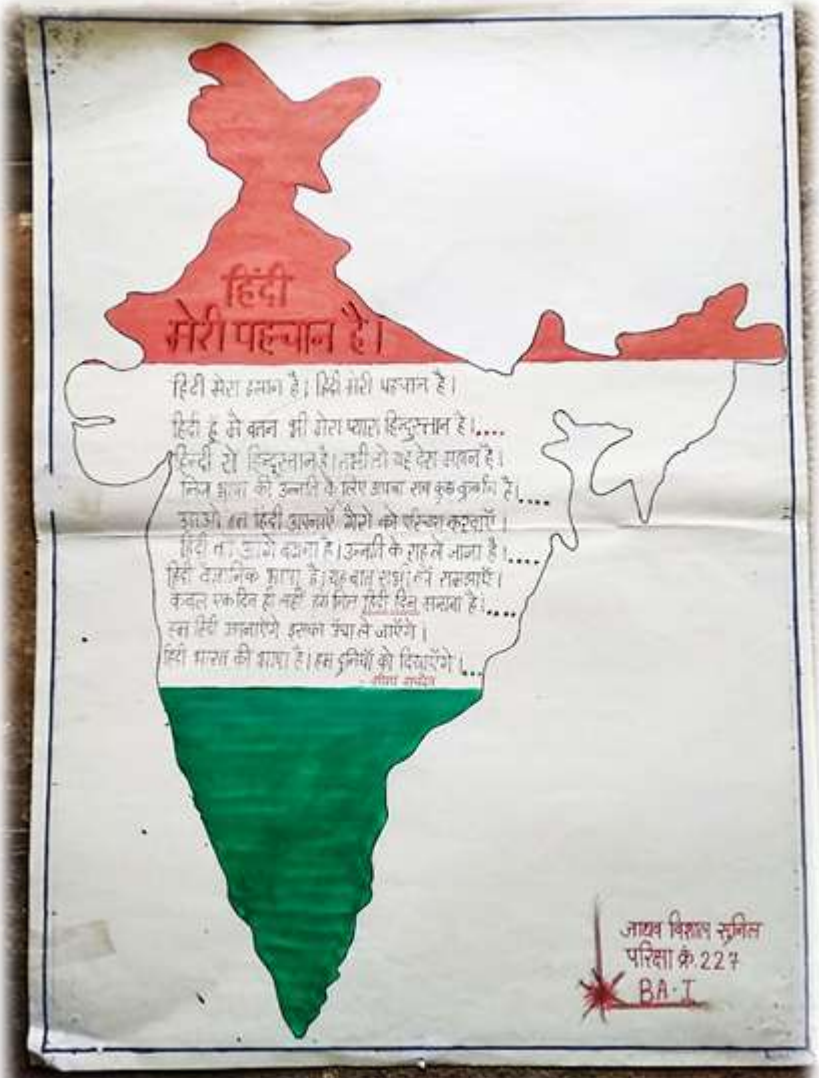 हिंदी
मेरी पहचान है।
हिंदी मेरा इमान है। हिंदी मेरी पहचान है।
हिंदी हूँ मै वतन भी मेरा प्यारा हिन्दुस्तान है।....
हिन्दी से हिन्दुस्तान है। तभी तो यह देश महान है।
निज भाषा की उन्नति के लिए अपना सब कुछ कुर्बान है।....
आओ हम हिंदी अपनाएँ गैरो को परिचय करवाएँ।
हिंदी को आगे बढाना है। उन्नति के राह ले जाना है।....
हिंदी वैज्ञानिक भाषा है। यह बात सभी को समझाएँ।
केवल एक दिन ही नहीं हमे नित हिंदी दिन मनाना है।....
हम हिंदी अपनाएंगे इसको उंचा ले जाएँगे।
हिंदी भारत की भाषा है। हम दुनियाँ को दिखाएँगे।...
जाधव विशाल सुनिल
परिक्षा क्रं. 227
BA-I